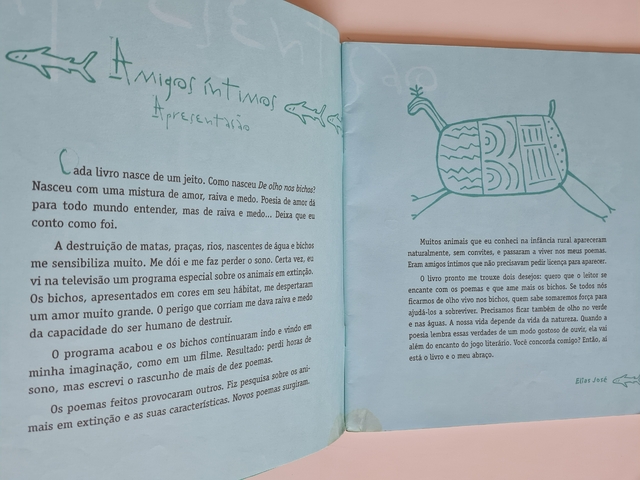 Amigos íntimos
Apresentação
Cada livro nasce de um jeito. Como nasceu De olho nos bichos?
Nasceu com uma mistura de amor, raiva e medo. Poesia de amor dá
para todo mundo entender, mas de raiva e medo... Deixa que eu
conto como foi.
A destruição de matas, praças, rios, nascentes de água e bichos
me sensibiliza muito. Me dói e me faz perder o sono. Certa vez, eu
vi na televisão um programa especial sobre os animais em extinção.
Os bichos, apresentados em cores em seu hábitat, me despertaram
um amor muito grande. O perigo que corriam me dava raiva e medo
da capacidade do ser humano de destruir.
O programa acabou e os bichos continuaram indo e vindo em
minha imaginação, como em um filme. Resultado: perdi horas de
sono, mas escrevi o rascunho de mais de dez poemas.
Os poemas feitos provocaram outros. Fiz pesquisa sobre os ani-
mais em extinção e as suas características. Novos poemas surgiram.
Muitos animais que eu conheci na infância rural apareceram
naturalmente, sem convites, e passaram a viver nos meus poemas.
Eram amigos íntimos que não precisavam pedir licença para aparecer.
O livro pronto me trouxe dois desejos: quero que o leitor se
encante com os poemas e que ame mais os bichos. Se todos nós
ficarmos de olho vivo nos bichos, quem sabe somaremos força para
ajudá-los a sobreviver. Precisamos ficar também de olho no verde
e nas águas. A nossa vida depende da vida da natureza. Quando a
poesia lembra essas verdades de um modo gostoso de ouvir, ela vai
além do encanto do jogo literário. Você concorda comigo? Então, aí
está o livro e o meu abraço.
Elias José